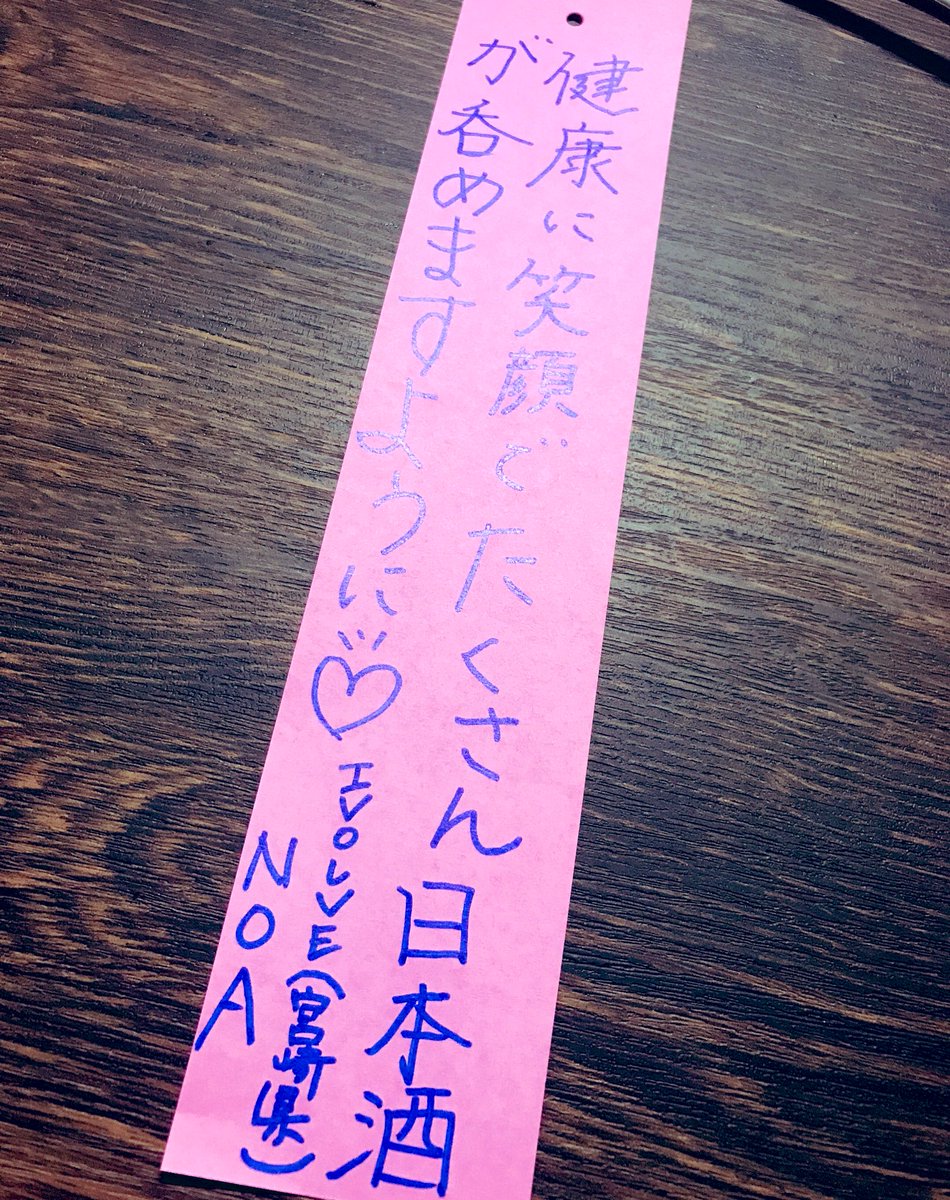 健康に笑顔でたくさん日本酒
が呑めますように♡
IVOLVE(宮崎県)
NOA